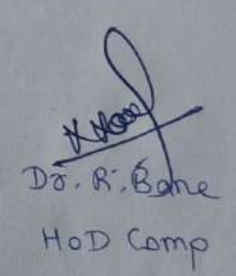 Dr. R. Bane
HoD Comp